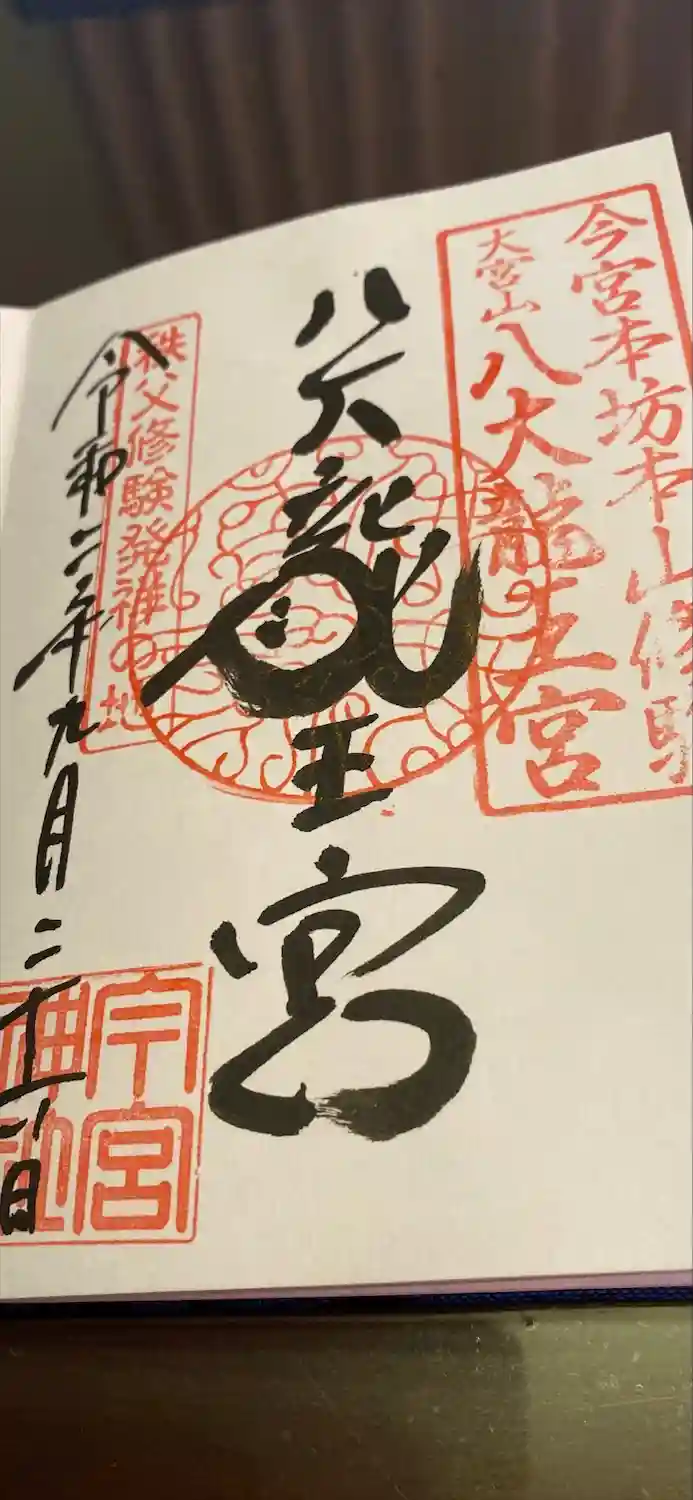 今宮本坊本山修験
大宮山八大龍王宮
八大龍王宮
秩父修験発祥の地
令和二年九月二十六日
今宮